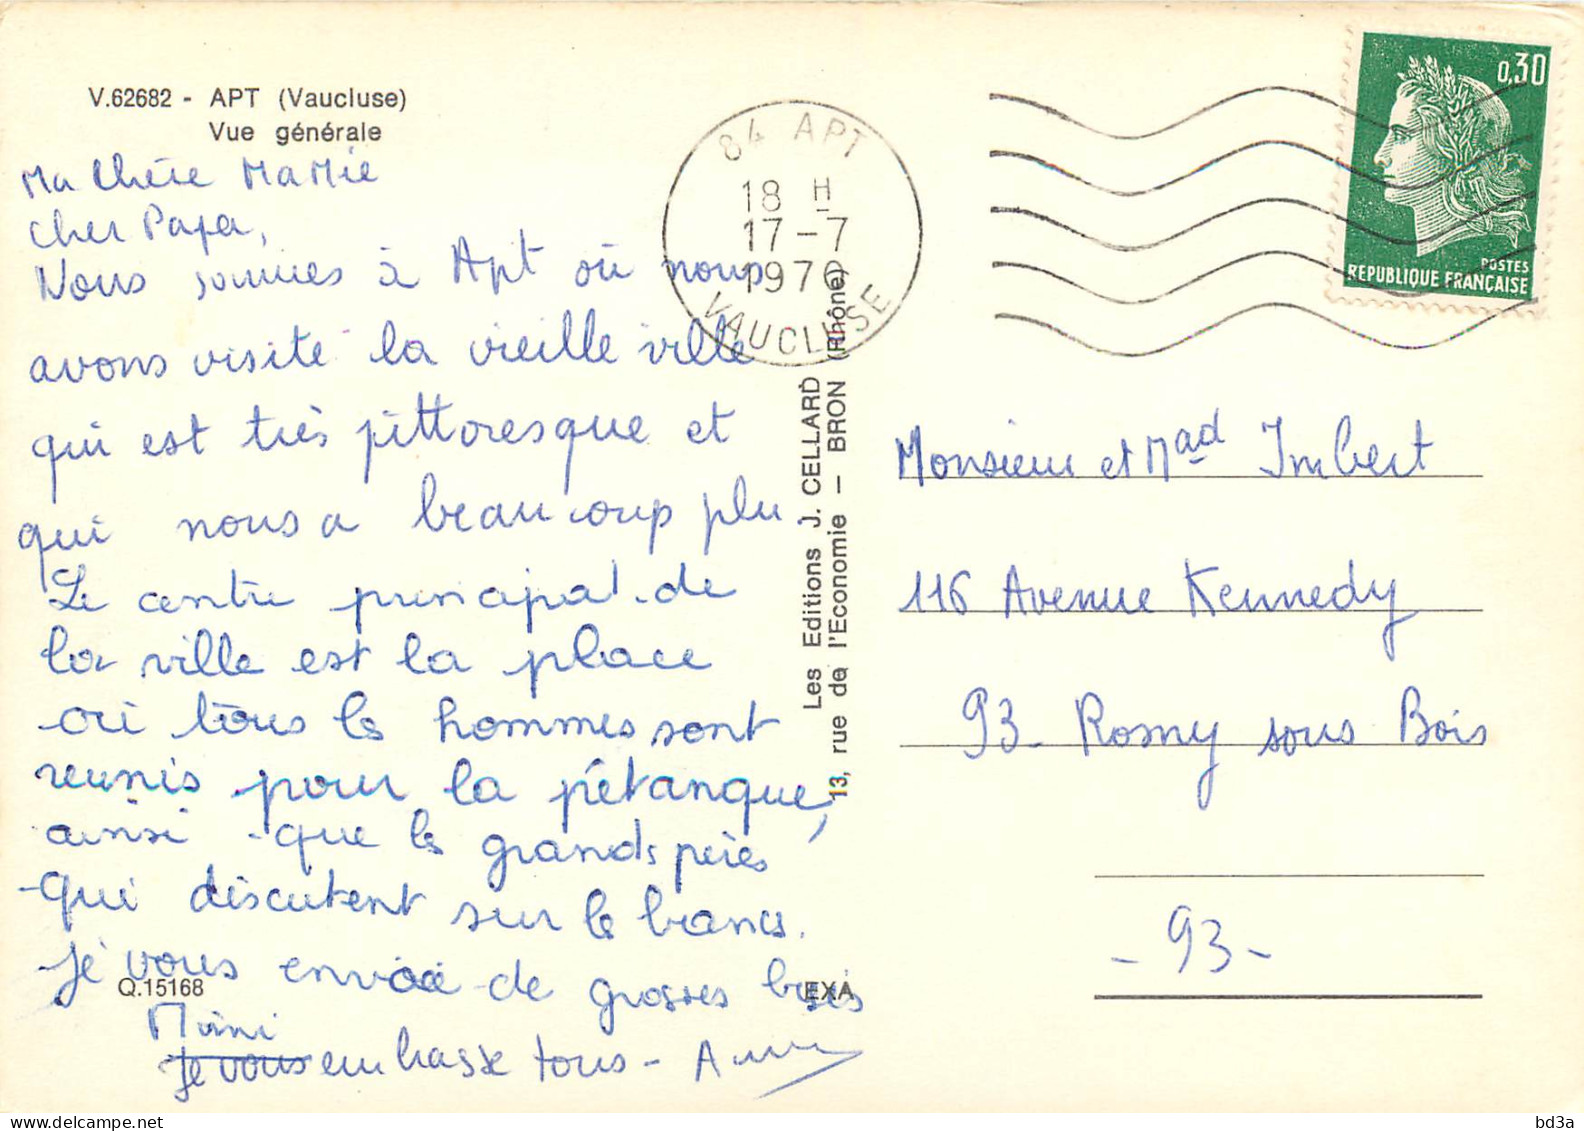 V.62682 - APT (Vaucluse)
Vue générale
Ma Chère MaMie
Cher Papa,
Nous sommes à Apt où nous
avons visité la vieille ville
qui est très pittoresque et
qui nous a beaucoup plu
Le centre principal de
la ville est la place
où tous les hommes sont
reunis pour la pétanque,
ainsi que les grands pères
qui discutent sur le bancs.
Je vous envoie de grosses bises
Mimi
Je vous embrasse tous -
Q.15168
EXA
84 APT
18 H
17-7
1970
VAUCLUSE
0,30
POSTES
REPUBLIQUE FRANÇAISE
Les Editions J. CELLARD
13, rue de l'Economie — BRON (Rhône)
Monsieur et Mad Imbert
116 Avenue Kennedy
93 - Rosny sous Bois
- 93 -
bd3a